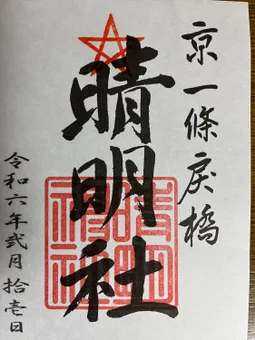 京一條戻橋
晴明社
令和六年弐月拾壱日